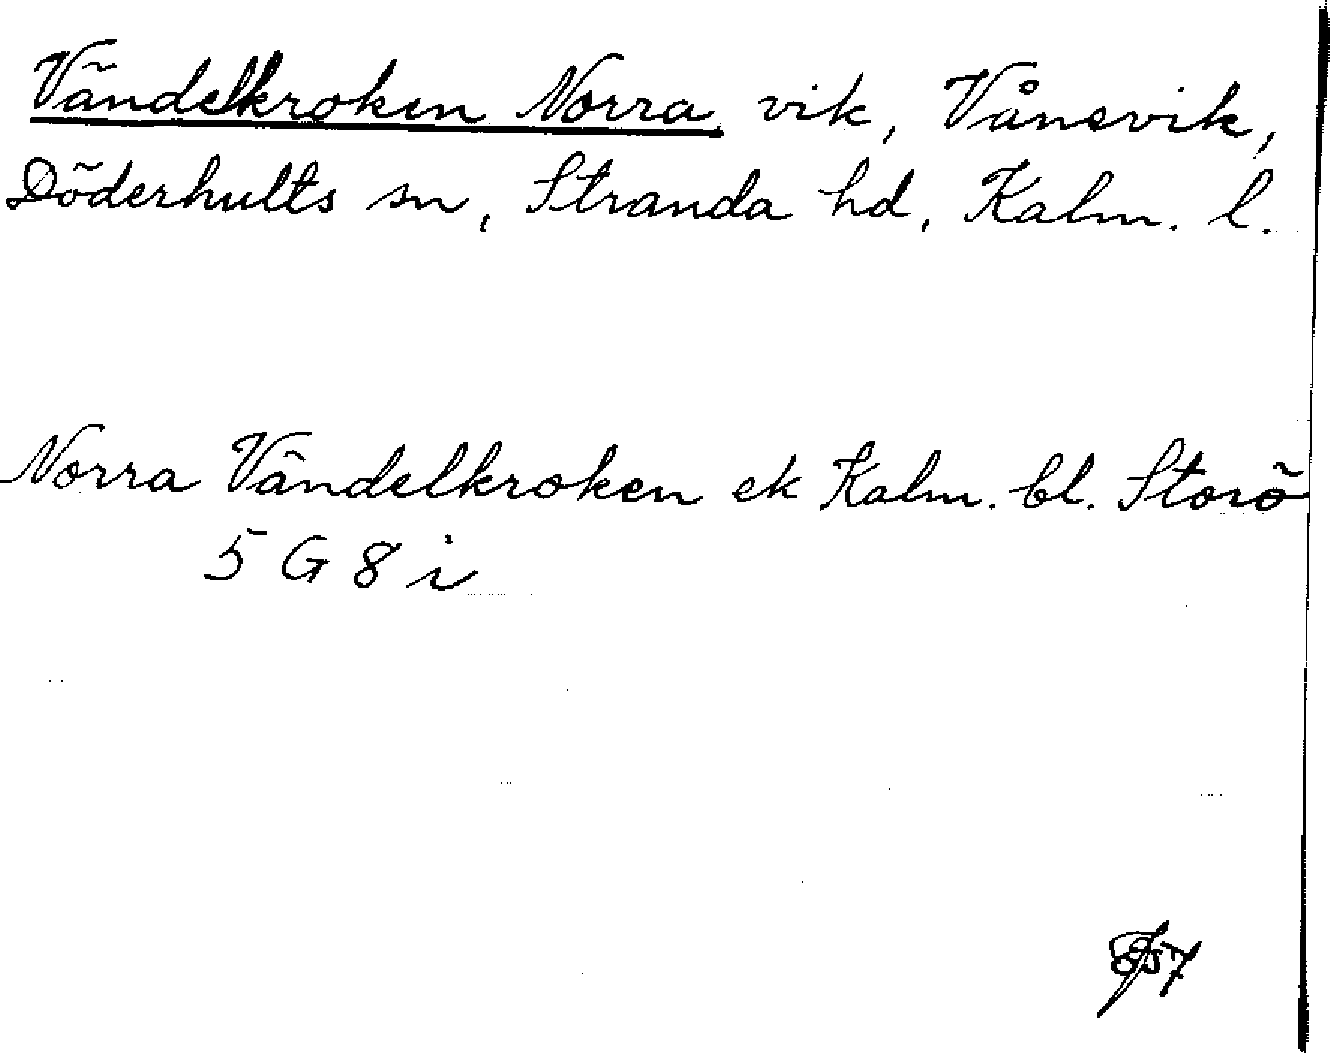 Vändelkroken Norra vik, Vånevik,
Döderhults sn, Stranda hd, Kalm. l.
Norra Vändelkroken ek Kalm. bl. Storö
5 G 8 i